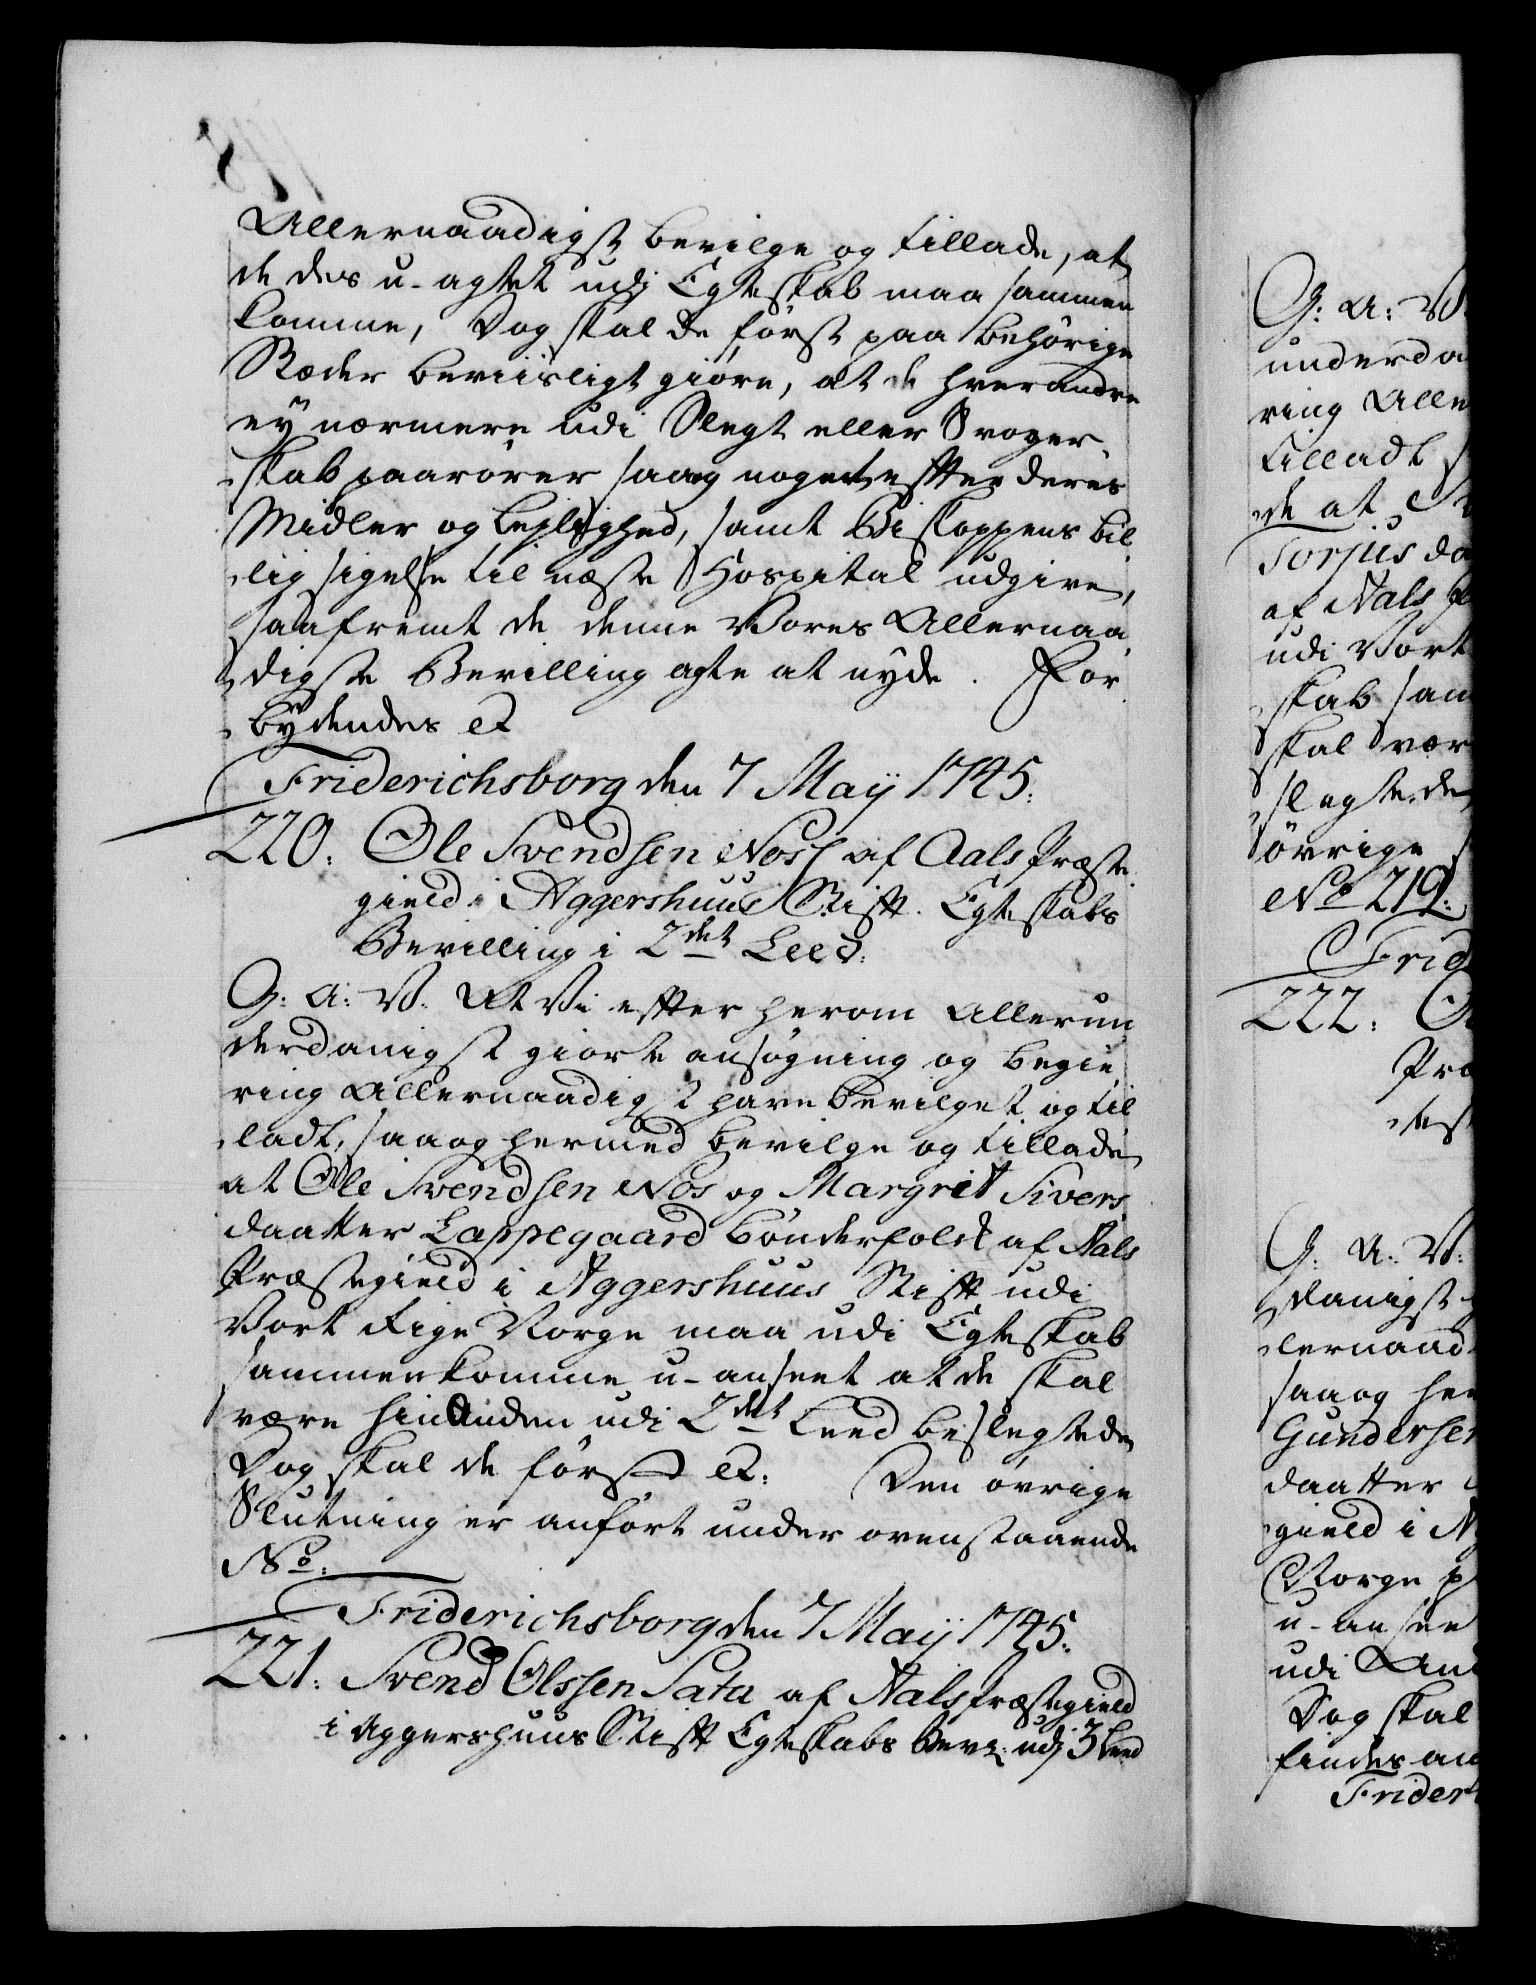 Allernaadigst bevilge og tillade, at
de des u-agtet udj Egteskab maa sammen
komme, Dog skal de först paa behörige
Stæder beviisligt giöre, at de hverandre
ey nærmere udi Slegt eller Svoger
skab paarörer saa og noget effter deres
Midler og Leylighed, samt Biskoppens bil
lig sigelse til næste Hospital udgive,
saafremt de denne Vores Allernaa
digste Bevilling agte at nyde. For
bydendes etc
Friderichsborg den 7 Maij 1745.
220. Ole Svendsen Nos af Aals Præste
gield i Aggershuus Stift. Egteskabs
Bevilling i 2det Leed.
G: A: V. At Vi effter herom Allerun
derdanigst giorte ansögning og begie
ring Allernaadigst have bevilget og til
ladt, saa og hermed bevilge og tillade
at Ole Svendsen Nos og Margrit Sivers
daatter Lappegaard bönderfolck af Aals
Præstegield i Aggershuus Stift udi
Vort Rige Norge maa udi Egteskab
sammenkomme u-anseet at de skal
være hinanden udi 2det Leed beslegtede
Dog skal de först etc: Den övrige
Slutning er anfört under ovenstaaende
No:
Friderichsborg den 7 Maij 1745.
221. Svend Olssen Sata af Aals Præstegield
i Aggershuus Stift Egteskabs Bev: udj 3 Leed
G: A: V
underda
ring Alle
tilladt
de at
Torjus da
af Aals
udi Vort
skab sam
skal vær
slegtede
övrige
No 219.
Frid
222.
Præ
G: A: V:
danigst
lernaad
saa og her
Gundersen
daatter
gield i
Norge
u-ansee
udi
Dog skal
findes an
Frider